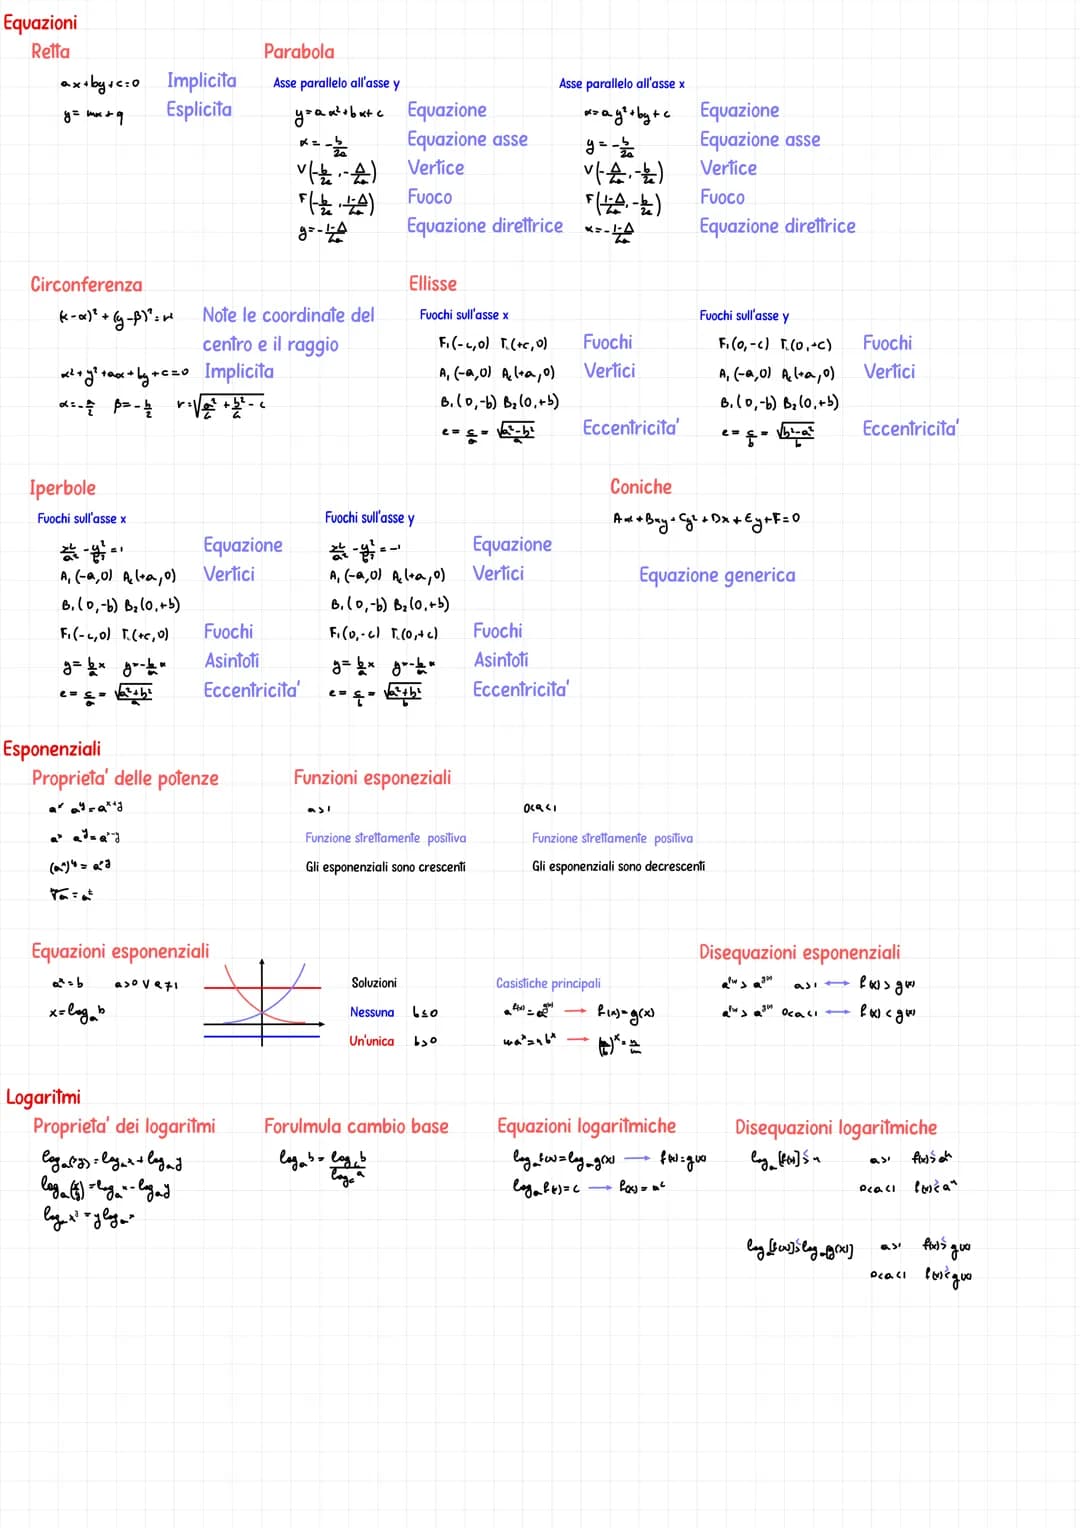 Equazioni
Retta
ax+by+c=0 Implicita
y= mx+q Esplicita
Parabola
Asse parallelo all'asse y
y=ax²+bx+c Equazione
x=-b/2a Equazione asse
V(-b/2a,-Δ/4a) Vertice
F(-b/2a,1-Δ/4a) Fuoco
y=-1-Δ/4a Equazione direttrice
Asse parallelo all'asse x
x=ay²+by+c Equazione
y=-b/2a Equazione asse
V(-Δ/4a,-b/2a) Vertice
F(1-Δ/4a,-b/2a) Fuoco
x=-1-Δ/4a Equazione direttrice
Circonferenza
(x-α)²+(y-β)²=r Note le coordinate del
centro e il raggio
x²+y²+ax+by+c=0 Implicita
α=-a/2 β=-b/2 r=√(a²/4+b²/4-c)
Ellisse
Fuochi sull'asse x
F₁(-c,0) F₂(+c,0) Fuochi
A₁(-a,0) A₂(+a,0) Vertici
B₁(0,-b) B₂(0,+b)
e=c/a=√(a²-b²)/a Eccentricita'
Fuochi sull'asse y
F₁(0,-c) F₂(0,+c) Fuochi
A₁(-a,0) A₂(+a,0) Vertici
B₁(0,-b) B₂(0,+b)
e=c/b=√(b²-a²)/b Eccentricita'
Iperbole
Fuochi sull'asse x
x²/a²-y²/b²=1 Equazione
A₁(-a,0) A₂(+a,0) Vertici
B₁(0,-b) B₂(0,+b)
F₁(-c,0) F₂(+c,0) Fuochi
y=b/a x y=-b/a x Asintoti
e=c/a=√(a²+b²)/a Eccentricita'
Fuochi sull'asse y
x²/a²-y²/b²=-1 Equazione
A₁(-a,0) A₂(+a,0) Vertici
B₁(0,-b) B₂(0,+b)
F₁(0,-c) F₂(0,+c) Fuochi
y=b/a x y=-b/a x Asintoti
e=c/b=√(a²+b²)/b Eccentricita'
Coniche
Ax²+Bxy+Cy²+Dx+Ey+F=0
Equazione generica
Esponenziali
Proprieta' delle potenze
aˣ aʸ=aˣ⁺ʸ
aˣ aʸ=aˣ⁻ʸ
(aˣ)ʸ=aˣʸ
Funzioni esponeziali
a>1
Funzione strettamente positiva
Gli esponenziali sono crescenti
0<a<1
Funzione strettamente positiva
Gli esponenziali sono decrescenti
Equazioni esponenziali
aˣ=b a>0 ∨ a≠1
x=logₐb
Soluzioni
Nessuna b≤0
Un'unica b>0
Casistiche principali
a^f(x)=a^g(x) → f(x)=g(x)
maˣ=nbˣ → (a/b)ˣ=n/m
Disequazioni esponenziali
a^f(x)>a^g(x) a>1 ↔ f(x)>g(x)
a^f(x)>a^g(x) 0<a<1 ↔ f(x)<g(x)
Logaritmi
Proprieta' dei logaritmi
logₐ(xy)=logₐx+logₐy
logₐ(x/y)=logₐx-logₐy
logₐxʸ=ylogₐx
Forulmula cambio base
logₐb=log꜀b/log꜀a
Equazioni logaritmiche
logₐf(x)=logₐg(x) → f(x)=g(x)
logₐf(x)=c → f(x)=aᶜ
Disequazioni logaritmiche
logₐ[f(x)]≶n a>1 f(x)≶aⁿ
0<a<1 f(x)≷aⁿ
logₐ[f(x)]≶logₐ[g(x)] a>1 f(x)≶g(x)
0<a<1 f(x)≷g(x)